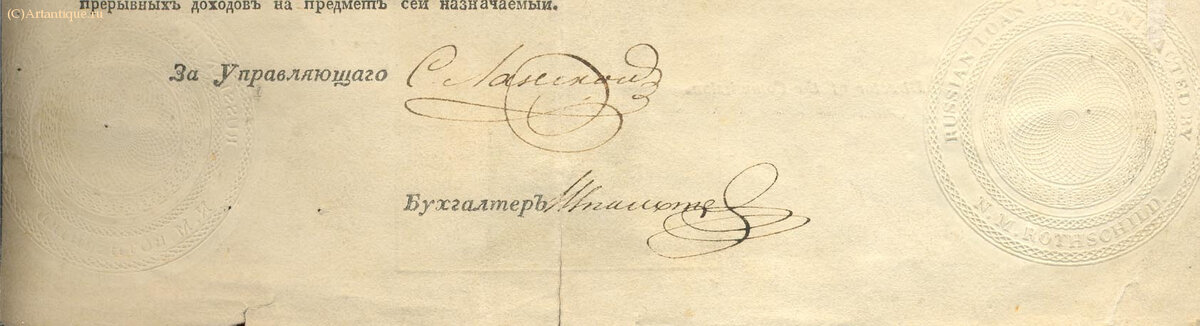 (C)Artantique.ru
прерывныхъ доходовъ на предметъ сей назначаемый.
За Управляющаго С Ланской
Бухгалтеръ
RUSSIAN LOAN 1822 CONTRACTED BY
N. M. ROTHSCHILD